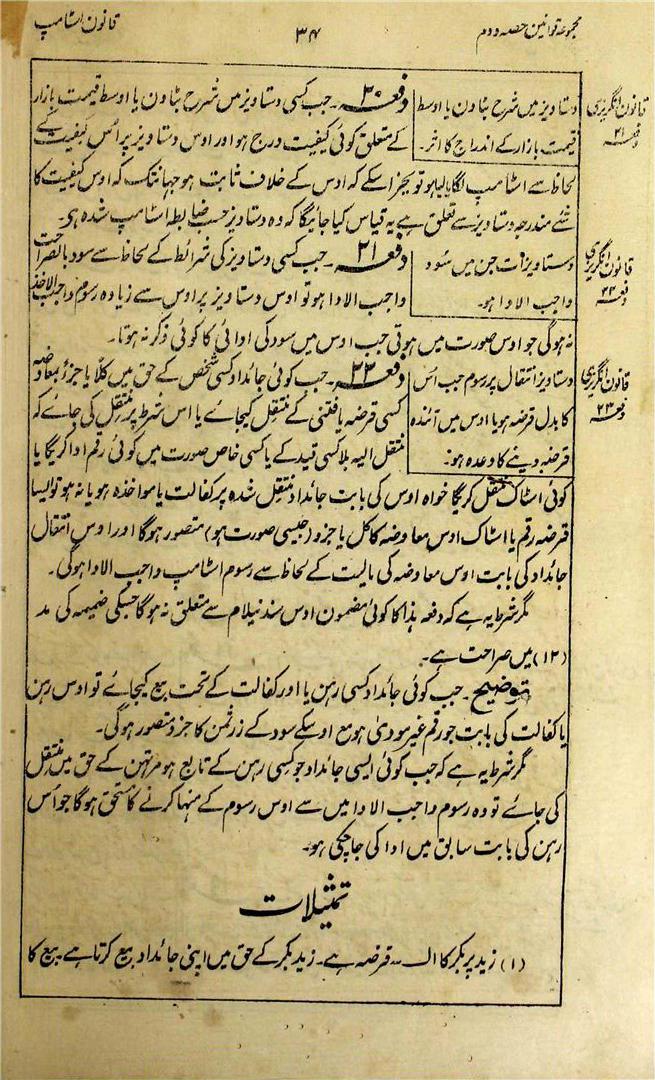 مجموعہ قوانین حصہ دوم
۳۴
قانون اسٹامپ
قانون انگریزی
دفعہ ۲۱
دستاویز میں شرح بٹاون یا اوسط
قیمت بازار کے اندراج کا اثر۔
دفعہ ۲۰۔ جب کسی دستاویز میں شرح بٹاون یا اوسط قیمت بازار
کے متعلق کوئی کیفیت درج ہو اور اوس دستاویز پر اُس کیفیت کے
لحاظ سے اسٹامپ لگایا گیا ہو تو بجز اسکے کہ اوس کے خلاف ثابت ہو جہانتک کہ اوس کیفیت کا
شئے مندرجہ دستاویز سے تعلق ہے یہ قیاس کیا جائیگا کہ وہ دستاویز حسب ضابطہ اسٹامپ شدہ ہی۔
قانون انگریزی
دفعہ ۲۲
دستاویزات جن میں سود
واجب الادا ہو۔
دفعہ ۲۱۔ جب کسی دستاویز کی شرائط کے لحاظ سے سود بالصراحت
واجب الادا ہو تو اوس دستاویز پر اوس سے زیادہ رسوم واجب الاخذ
نہ ہوگی جو اوس صورت میں ہوتی جب اوس میں سود کی ادائی کا کوئی ذکر نہ ہوتا۔
قانون انگریزی
دفعہ ۲۳
دستاویز انتقال پر رسوم جب اُس
کا بدل قرضہ ہو یا اوس میں آئندہ
قرضہ دینے کا وعدہ ہو۔
دفعہ ۲۲۔ جب کوئی جائداد کسی شخص کے حق میں کلاً یا جزءً بمعاوضہ
کسی قرضہ یافتنی کے منتقل کیجائے یا اس شرط پر منتقل کی جائے کہ
منتقل الیہ بلا کسی قید کے یا کسی خاص صورت میں کوئی رقم ادا کریگا یا
کوئی اسٹاک منتقل کریگا خواہ اوس کی بابت جائداد منتقل شدہ پر کفالت یا مواخذہ ہو یا نہ ہو تو ایسا
قرضہ رقم یا اسٹاک اوس معاوضہ کا کل یا جزو (جیسی صورت ہو) متصور ہوگا اور اوس انتقال
جائداد کی بابت اوس معاوضہ کی مالیت کے لحاظ سے رسوم اسٹامپ واجب الادا ہوگی۔
مگر شرط یہ ہے کہ دفعہ ہذا کا کوئی مضمون اوس سند نیلام سے متعلق نہ ہوگا جسکی ضمیمہ کی مد
(۱۲) میں صراحت ہے۔
توضیح۔ جب کوئی جائداد کسی رہن یا اور کفالت کے تحت بیع کیجائے تو اوس رہن
یا کفالت کی بابت جو رقم غیر مودیٰ ہو مع اوسکے سود کے زرثمن کا جزو متصور ہوگی۔
مگر شرط یہ ہے کہ جب کوئی ایسی جائداد جو کسی رہن کے تابع ہو مرتہن کے حق میں منتقل
کی جائے تو وہ رسوم واجب الادا میں سے اوس رسوم کے منہا کرنے کا مستحق ہوگا جو اُس
رہن کی بابت سابق میں ادا کی جاچکی ہو۔
تمثیلات
(۱) زید پر بکر کا قرضہ ہے۔ زید بکر کے حق میں اپنی جائداد بیع کرتا ہے بیع کا